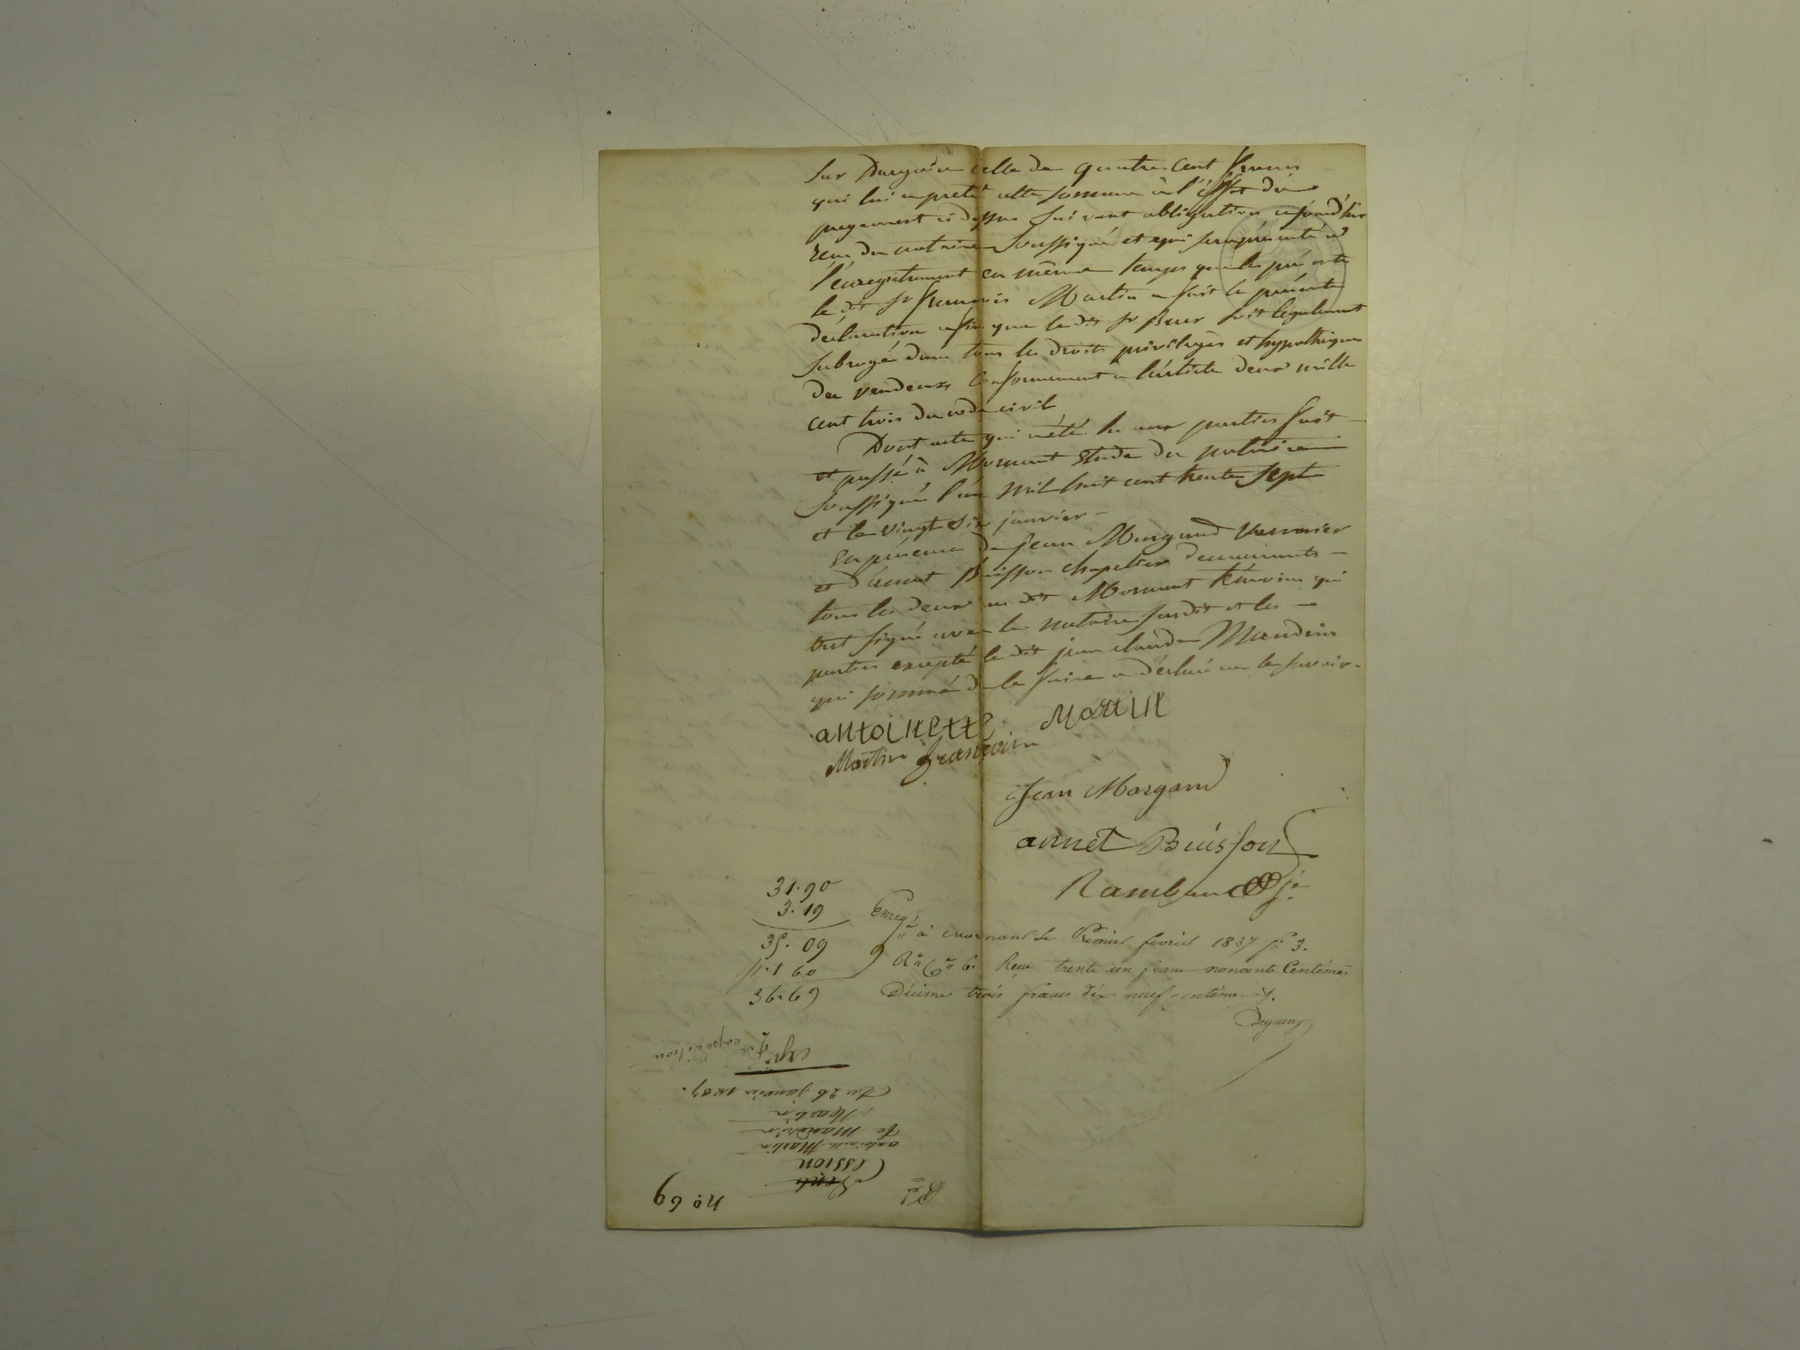 celle de quatre cent francs
qui lui a preté cette somme à l'effet du
payement ci dessus suivant obligation aujourd'hui
reçu du notaire soussigné et qui sera présenté à
l'enregistrement en même temps que les présente
le dit sr francois Martin a fait la présente
déclaration afin que le dit sr soit légalement
subrogé dans tous les droits privilèges et hypothèques
des vendeurs conformément a l'article deux mille
cent trois du code civil
Dont acte qui a été lu aux parties fait
et passé à Mornant étude du notaire
soussigné l'an mil huit cent trente sept
et le vingt six janvier
En présence de jean Morgand
et d'annet Buisson chapelier demeurants
tous les deux au dit Mornant témoins qui
ont signé avec le notaire susdit et les
parties excepté le dit jean claude Mandrin
qui sommé de le faire a déclaré ne le savoir
antoinette Martin
Martin francoise
Jean Morgand
annet Buisson
31.90
3.19
35.09
1 60
36.69
Enreg. à mornant le Premier fevrier 1837 fo 3.
Ro Co 6. Reçu trente un francs nonante Centimes
Décime trois francs dix neuf centimes
expédition
Du 26 janvier 1837.
Martin
Mandrin
antoinette Martin
Cession
no 69